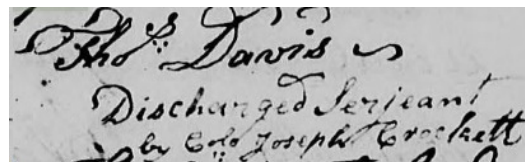 Thos Davis
Discharged Serjeant
by Colo Joseph Crockett